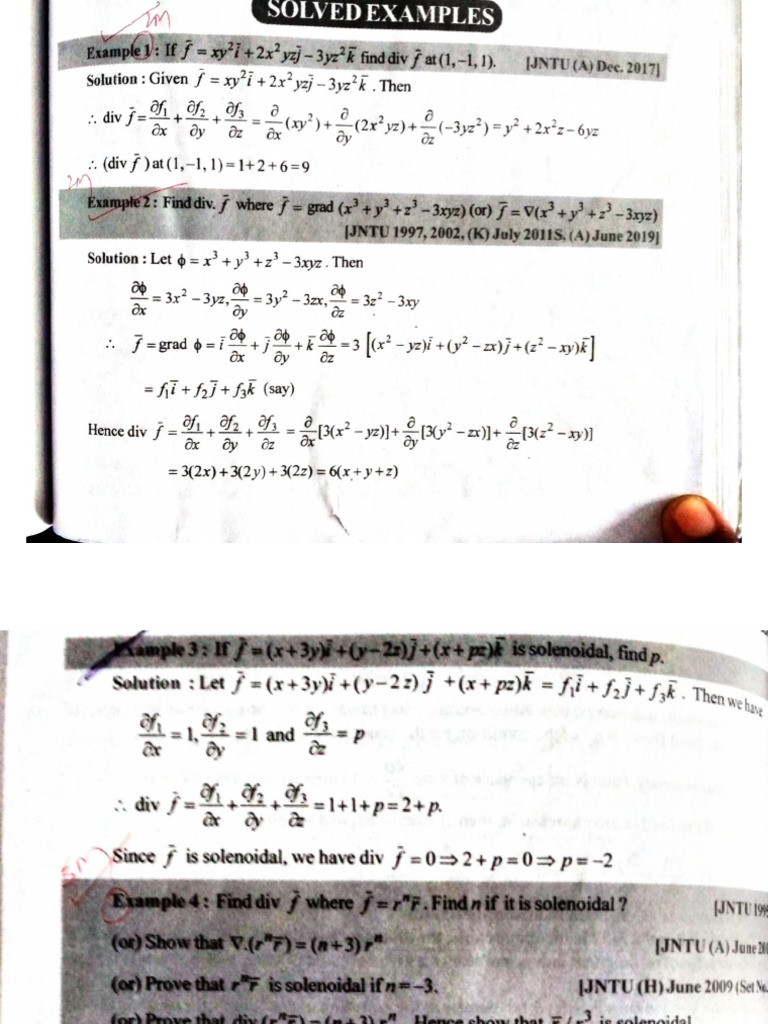 2M
SOLVED EXAMPLES
Example 1 : If f̄ = xy²ī + 2x²yzj̄ − 3yz²k̄ find div f̄ at (1, −1, 1). [JNTU (A) Dec. 2017]
Solution : Given f̄ = xy²ī + 2x²yzj̄ − 3yz²k̄ . Then
∴ div f̄ = ∂f₁/∂x + ∂f₂/∂y + ∂f₃/∂z = ∂/∂x (xy²) + ∂/∂y (2x²yz) + ∂/∂z (−3yz²) = y² + 2x²z − 6yz
∴ (div f̄ ) at (1, −1, 1) = 1 + 2 + 6 = 9
2M
Example 2 : Find div. f̄ where f̄ = grad (x³ + y³ + z³ − 3xyz) (or) f̄ = ∇(x³ + y³ + z³ − 3xyz)
[JNTU 1997, 2002, (K) July 2011S, (A) June 2019]
Solution : Let ϕ = x³ + y³ + z³ − 3xyz . Then
∂ϕ/∂x = 3x² − 3yz, ∂ϕ/∂y = 3y² − 3zx, ∂ϕ/∂z = 3z² − 3xy
∴ f̄ = grad ϕ = ī ∂ϕ/∂x + j̄ ∂ϕ/∂y + k̄ ∂ϕ/∂z = 3 [(x² − yz)ī + (y² − zx)j̄ + (z² − xy)k̄]
= f₁ī + f₂j̄ + f₃k̄ (say)
Hence div f̄ = ∂f₁/∂x + ∂f₂/∂y + ∂f₃/∂z = ∂/∂x [3(x² − yz)] + ∂/∂y [3(y² − zx)] + ∂/∂z [3(z² − xy)]
= 3(2x) + 3(2y) + 3(2z) = 6(x + y + z)
Example 3 : If f̄ = (x + 3y)ī + (y − 2z)j̄ + (x + pz)k̄ is solenoidal, find p.
Solution : Let f̄ = (x + 3y)ī + (y − 2z) j̄ + (x + pz)k̄ = f₁ī + f₂j̄ + f₃k̄ . Then we have
∂f₁/∂x = 1, ∂f₂/∂y = 1 and ∂f₃/∂z = p
∴ div f̄ = ∂f₁/∂x + ∂f₂/∂y + ∂f₃/∂z = 1 + 1 + p = 2 + p.
Since f̄ is solenoidal, we have div f̄ = 0 ⇒ 2 + p = 0 ⇒ p = −2
5M
Example 4 : Find div f̄ where f̄ = rⁿr̄ . Find n if it is solenoidal ? [JNTU 199
(or) Show that ∇.(rⁿr̄) = (n + 3) rⁿ [JNTU (A) June 20
(or) Prove that rⁿr̄ is solenoidal if n = −3. [JNTU (H) June 2009 (Set No.
(or) Prove that div (rⁿr̄) = (n + 3) rⁿ. Hence show that r̄ / r³ is solenoidal